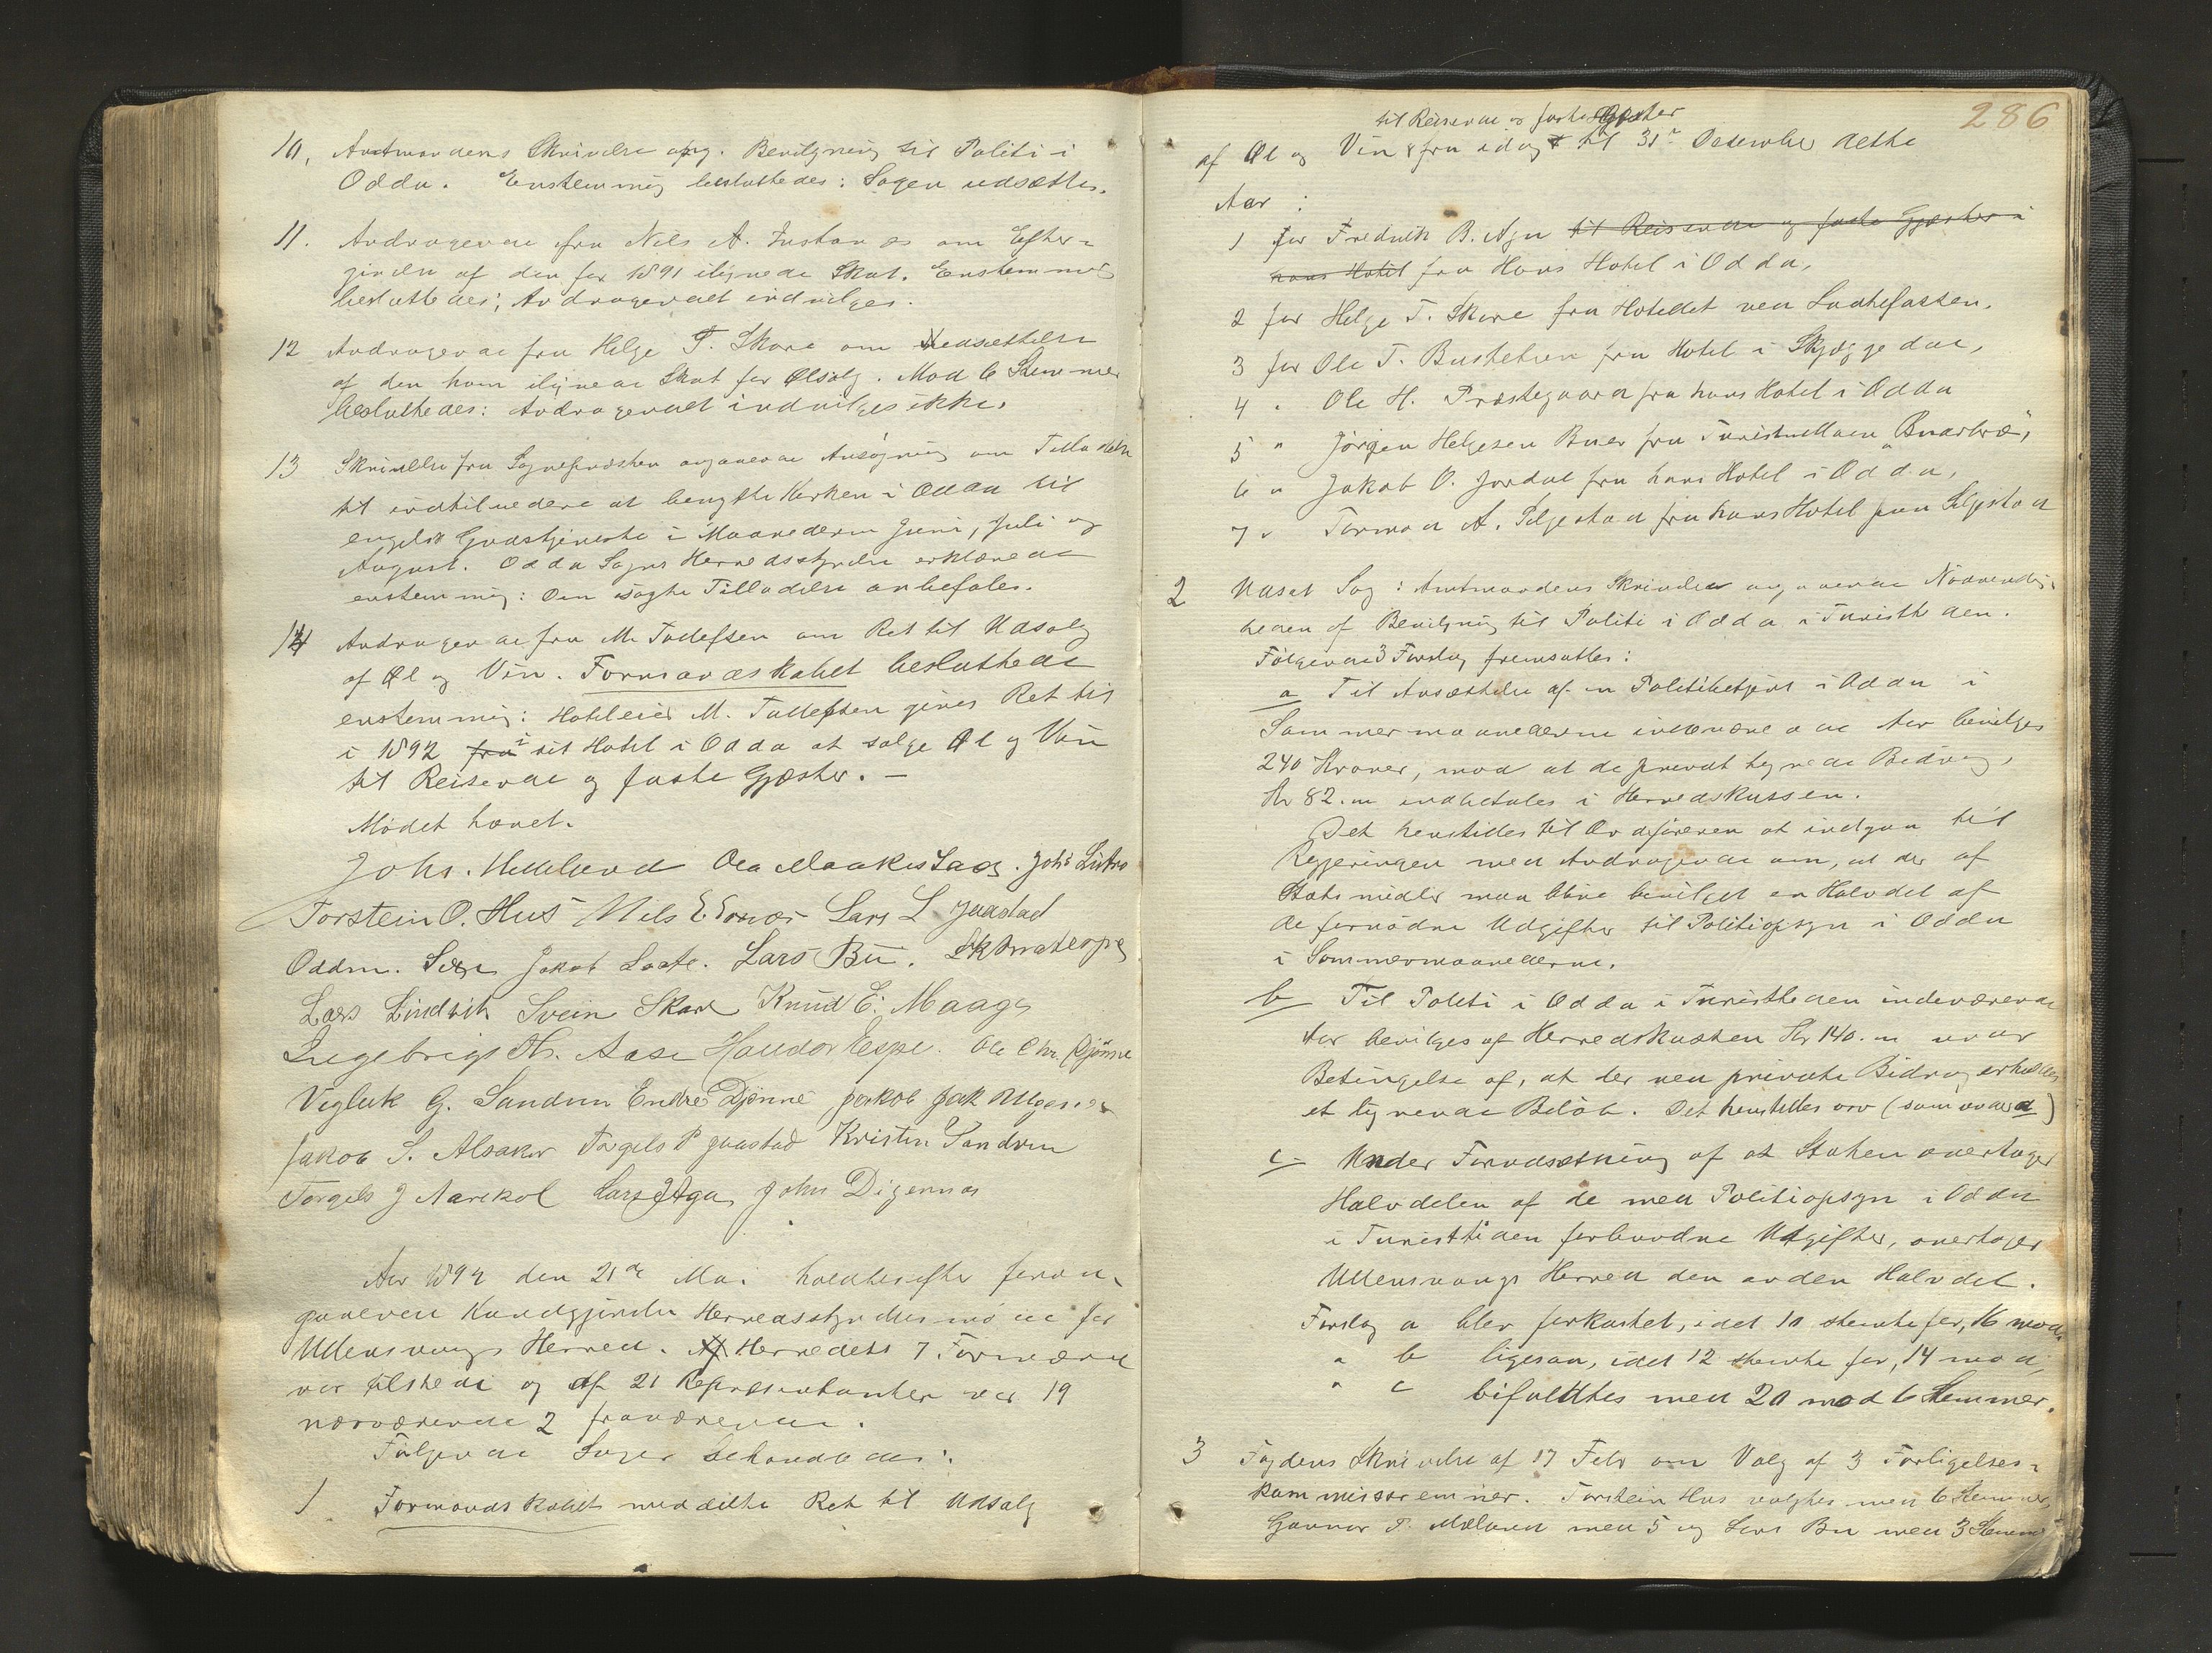 10, Amtmandens Skrivelse ang. Bevilgning til Politi i
Odda. Enstemmig besluttedes: Sagen udsættes.
11. Andragende fra Nils A. om Efter-
givelse af den for 1891 ilignede Skat. Enstemmig
besluttedes; Andragendet indvilges.
12 Andragende fra Helge T. Skare om Nedsættelse
af den ham ilignede Skat for Ølsalg. Mod 6 Stemmer
besluttedes: Andragendet indvilges ikke.
13 Skrivelse fra Sognepræsten angaaende Ansøgning om Tilladelse
til indtilvedere at benytte Kirken i Odda til
engelsk Gudstjeneste i Maanederne Juni, Juli og
August. Odda Sogns Herredsstyrelse erklærede
enstemmig: Den søgte Tilladelse anbefales.
14 Andragende fra M. Tollefsen om Ret til Udsalg
af Øl og Vin. Formandskabet besluttede
enstemmig: Hoteleier M. Tollefsen gives Ret til
i 1892 fra i sit Hotel i Odda at sælge Øl og Vin
til Reisende og faste Gjæster. —
Mødet hævet.
Johs. Helleland Ola Maakestad. Johs
Torstein O. Hus Nils E Lars L Jaastad
Oddm. Jakob Lote. Lars Bu.
Lars Lindvik Svein Skare Knud E. Maage
Ingebrigt Th. Aase Haldor Espe. Ole Chr. Djønne
Vigluk G. Sandven Endre Djønne Jakob Jak
Jakob S. Alsaker Torgels P Jaastad Kristen Sandven
Torgels J Lars J Aga John Digernes
Aar 1892 den 21de Mai holdtes efter forud-
gaaende Kundgjørelse Herredsstyrelsesmøde for
Ullensvangs Herred. Af Herredets 7 Formænd
var tilstede og af 21 Repræsentanter var 19
nærværende 2 fraværende.
Følgende Sager behandledes:
1. Formandskabet meddelte Ret til Udsalg
286
til Reisende og faste Gjæster
af Øl og Vin fra idag til 31te December dette
Aar:
1 for Fredrik B. Aga til Reisende og faste Gjæster i
hans Hotel fra Hans Hotel i Odda,
2 for Helge T. Skare fra Hotellet ved Laatefossen,
3 for Ole T. Bustetun fra Hotel i Skjæggedal,
4 " Ole H. Præstegaard fra hans Hotel i Odda
5 " Jørgen Helgesen Buer fra "Buarbræ",
6 " Jakob O. Jordal fra hans Hotel i Odda,
7 " Tormod A. Seljestad fra hans Hotel paa Seljestad
2 Udsat Sag: Amtmandens Skrivelse angaaende Nødvendig-
heden af Bevilgning til Politi i Odda i Turisttiden.
Følgende 3 Forslag fremsattes:
a Til Ansættelse af en Politibetjent i Odda i
Sommermaanederne indeværende Aar bevilges
240 Kroner, mod at de privat tegnede Bidrag,
Kr 82.00 indbetales i Herredskassen.
Det henstilles til Ordføreren at indgaa til
Regjeringen med Andragende om, at der af
Statsmidler maa blive bevilget en Halvdel af
de fornødne Udgifter til Politiopsyn i Odda
i Sommermaanederne.
b Til Politi i Odda i Turisttiden indeværende
Aar bevilges af Herredskassen Kr 140.00 under
Betingelse af, at der ved private Bidrag erholdes
et lignende Beløb. Det henstilles osv (som under a)
c- Under Forudsætning af at Staten overtager
Halvdelen af de med Politiopsyn i Odda
i Turisttiden forbundne Udgifter, overtager
Ullensvangs Herred den anden Halvdel.
Forslag a blev forkastet, idet 10 stemte for, 16 mod,
" b ligesaa, idet 12 stemte for, 14 mod,
" c bifaldtes med 20 mod 6 Stemmer.
3 Fogdens Skrivelse af 17 Febr om Valg af 3 Forligelses-
kommissærer. Torstein Hus valgtes med 6 Stemmer,
Gunnar T. Mæland med 5 og Lars Bu med 3 Stemmer